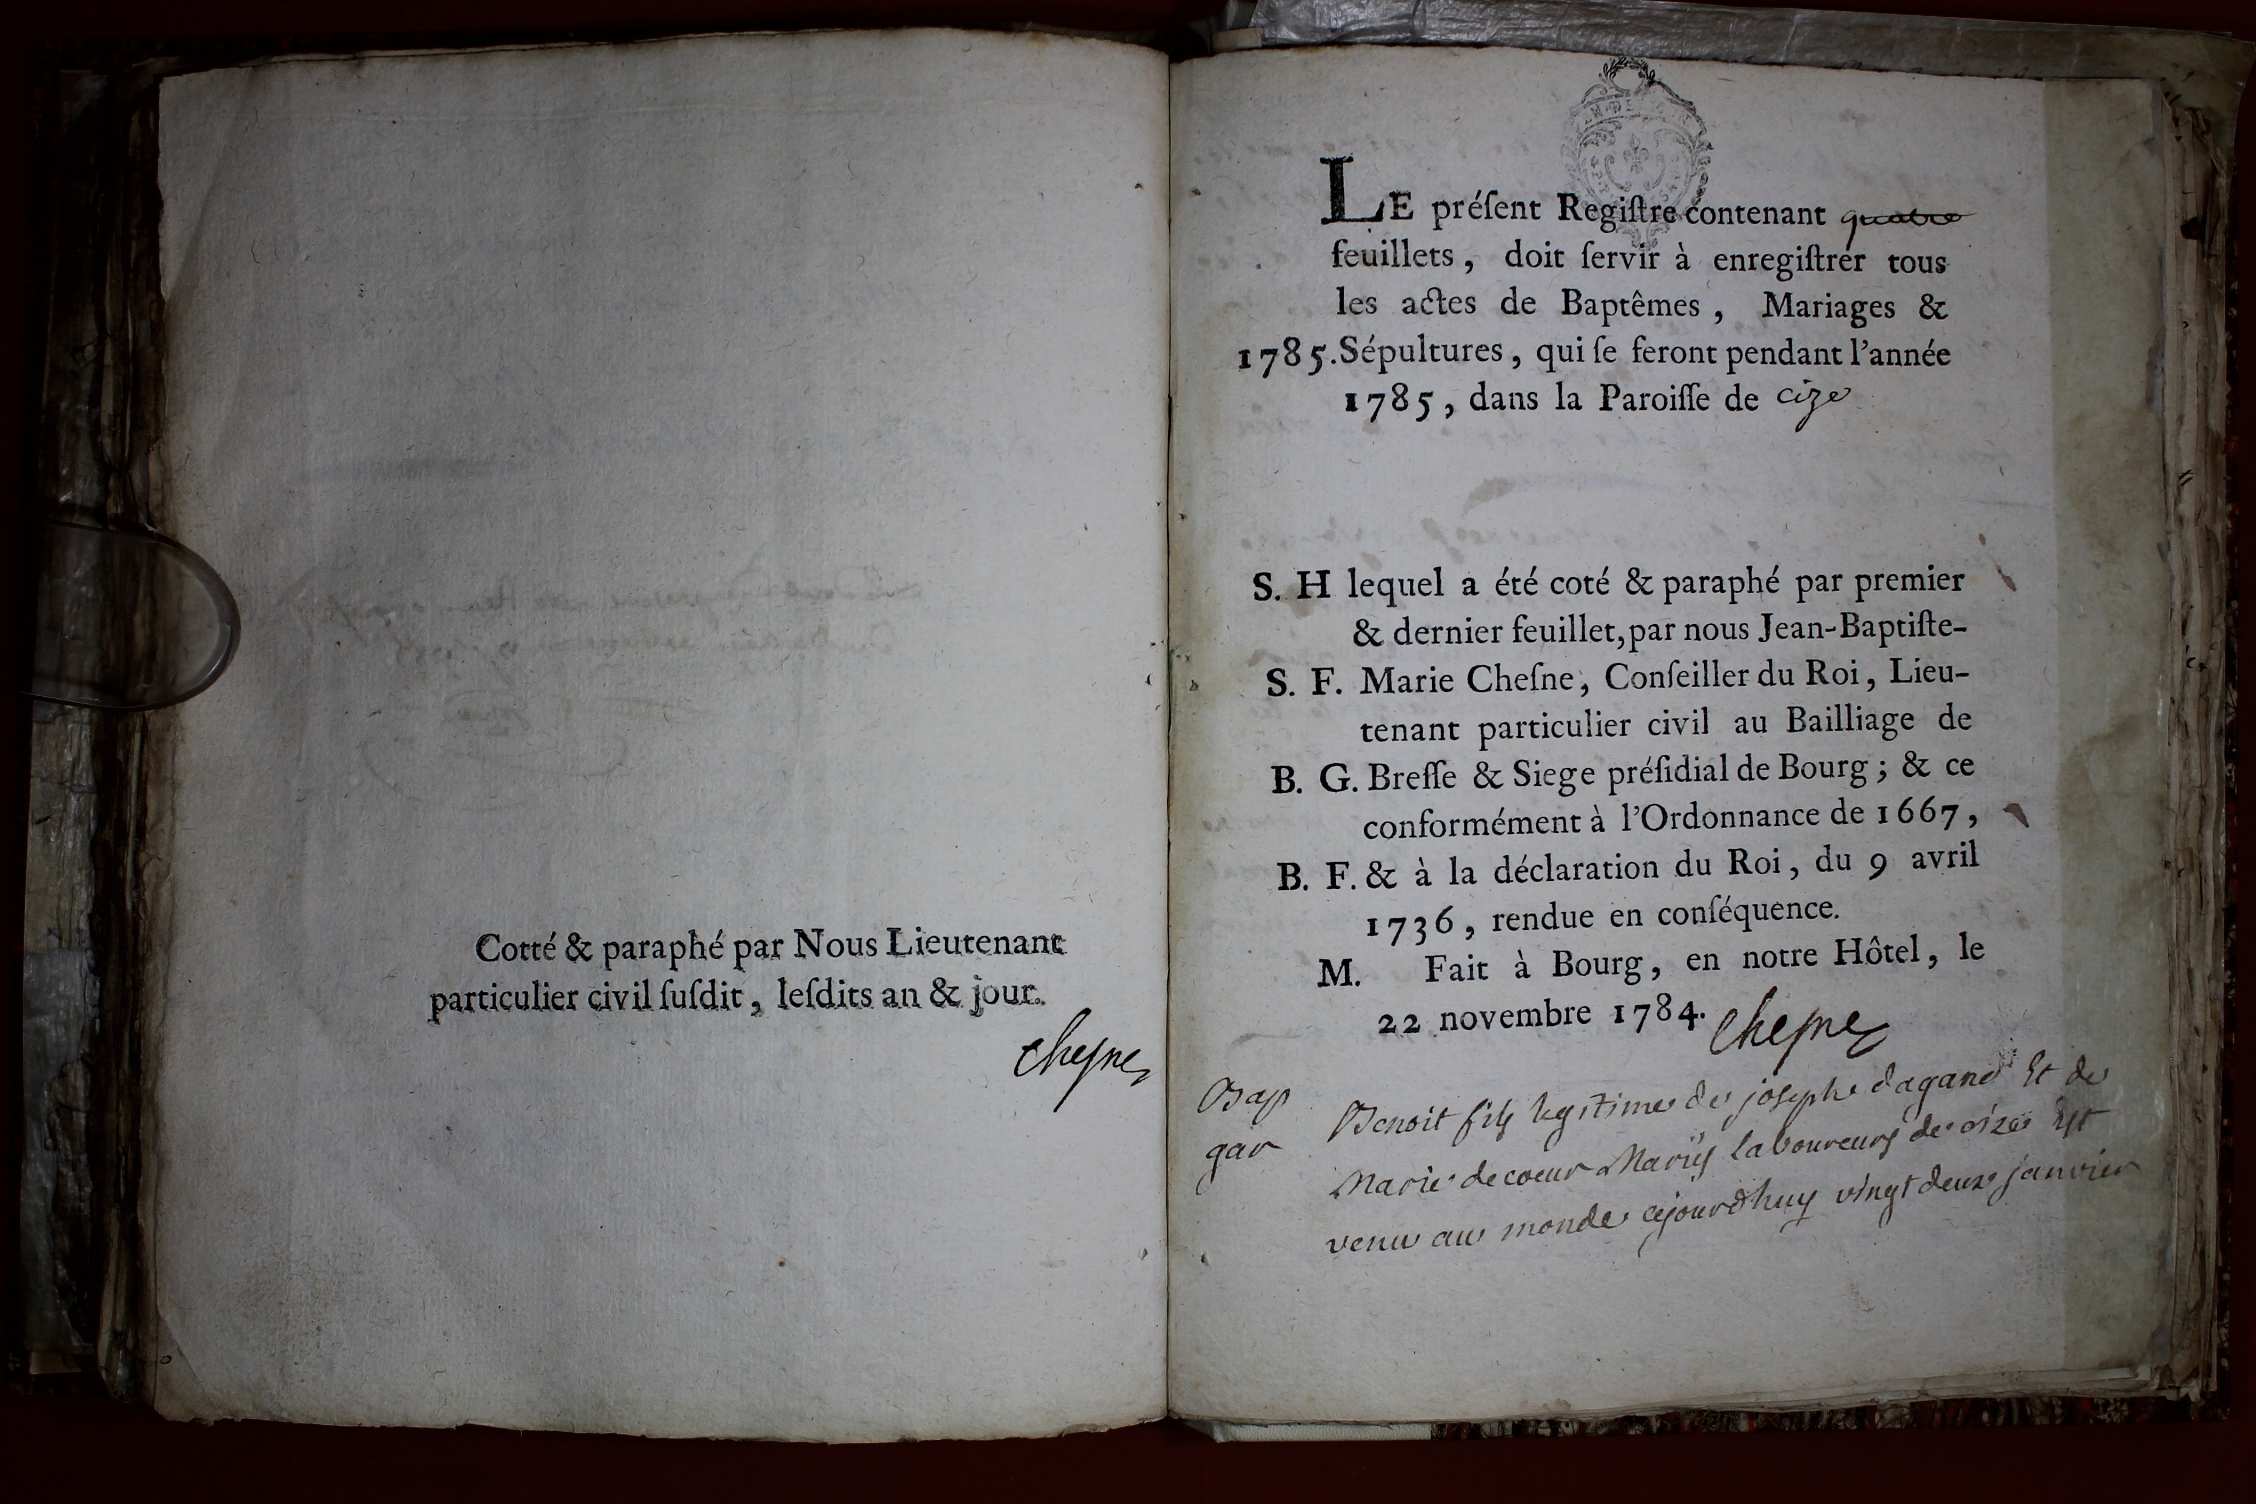 Cotté & paraphé par Nous Lieutenant
particulier civil ſuſdit, leſdits an & jour.
cheſne
LE préſent Regiſtre contenant quatre
feuillets, doit ſervir à enregiſtrer tous
les actes de Baptêmes, Mariages &
1785. Sépultures, qui ſe feront pendant l'année
1785, dans la Paroiſſe de cize
S. H lequel a été coté & paraphé par premier
& dernier feuillet, par nous Jean-Baptiſte-
S. F. Marie Cheſne, Conſeiller du Roi, Lieu-
tenant particulier civil au Bailliage de
B. G. Breſſe & Siege préſidial de Bourg; & ce
conformément à l'Ordonnance de 1667,
B. F. & à la déclaration du Roi, du 9 avril
1736, rendue en conſéquence.
M. Fait à Bourg, en notre Hôtel, le
22 novembre 1784. Cheſne
Bap
gar
Benoit fils legitime de joseph dagand Et de
Marie decoeur Mariés laboureurs de cize Est
venu au monde cejourdhuy vingt deux janvier